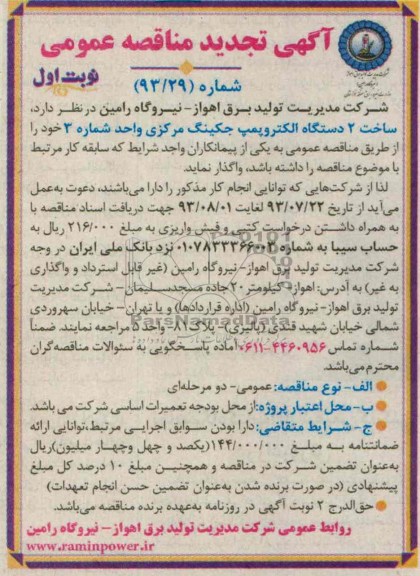 آگهی تجدید مناقصه عمومی
نوبت اول
شماره (۹۳/۲۹)
شرکت مدیریت تولید برق اهواز- نیروگاه رامین در نظر دارد،
ساخت ۲ دستگاه الکتروپمپ جکینگ مرکزی واحد شماره ۳ خود را
از طریق مناقصه عمومی به یکی از پیمانکاران واجد شرایط که سابقه کار مرتبط
با موضوع مناقصه را داشته باشد، واگذار نماید.
لذا از شرکت‌هایی که توانایی انجام کار مذکور را دارا می‌باشند، دعوت به‌عمل
می‌آید از تاریخ ۹۳/۰۷/۲۲ لغایت ۹۳/۰۸/۰۱ جهت دریافت اسناد مناقصه با
به همراه داشتن درخواست کتبی و فیش واریزی به مبلغ ۲۱۶/۰۰۰ ریال به
حساب سیبا به شماره ۰۱۰۷۸۳۳۳۶۶۰۰۲ نزد بانک ملی ایران در وجه
شرکت مدیریت تولید برق اهواز- نیروگاه رامین (غیر قابل استرداد و واگذاری
به غیر) به آدرس: اهواز- کیلومتر ۲۰ جاده مسجدسلیمان- شرکت مدیریت
تولید برق اهواز- نیروگاه رامین (اداره قراردادها) و یا تهران- خیابان سهروردی
شمالی خیابان شهید قندی (پالیزی)- پلاک واحد ۵ مراجعه نمایند. ضمناً
شماره تماس ۴۴۶۰۹۵۶-۰۶۱۱ آماده پاسخگویی به سئوالات مناقصه‌گران
محترم می‌باشد.
الف- نوع مناقصه: عمومی- دو مرحله‌ای
ب- محل اعتبار پروژه: از محل بودجه تعمیرات اساسی شرکت می باشد.
ج- شرایط متقاضی: دارا بودن سوابق اجرایی مرتبط، توانایی ارائه
ضمانتنامه به مبلغ ۱۴۴/۰۰۰/۰۰۰ (یکصد و چهل وچهار میلیون) ریال
به‌عنوان تضمین شرکت در مناقصه و همچنین مبلغ ۱۰ درصد کل مبلغ
پیشنهادی (در صورت برنده شدن به‌عنوان تضمین حسن انجام تعهدات)
حق‌الدرج ۲ نوبت آگهی در روزنامه به‌عهده برنده مناقصه می‌باشد.
روابط عمومی شرکت مدیریت تولید برق اهواز- نیروگاه رامین
www.raminpower.ir